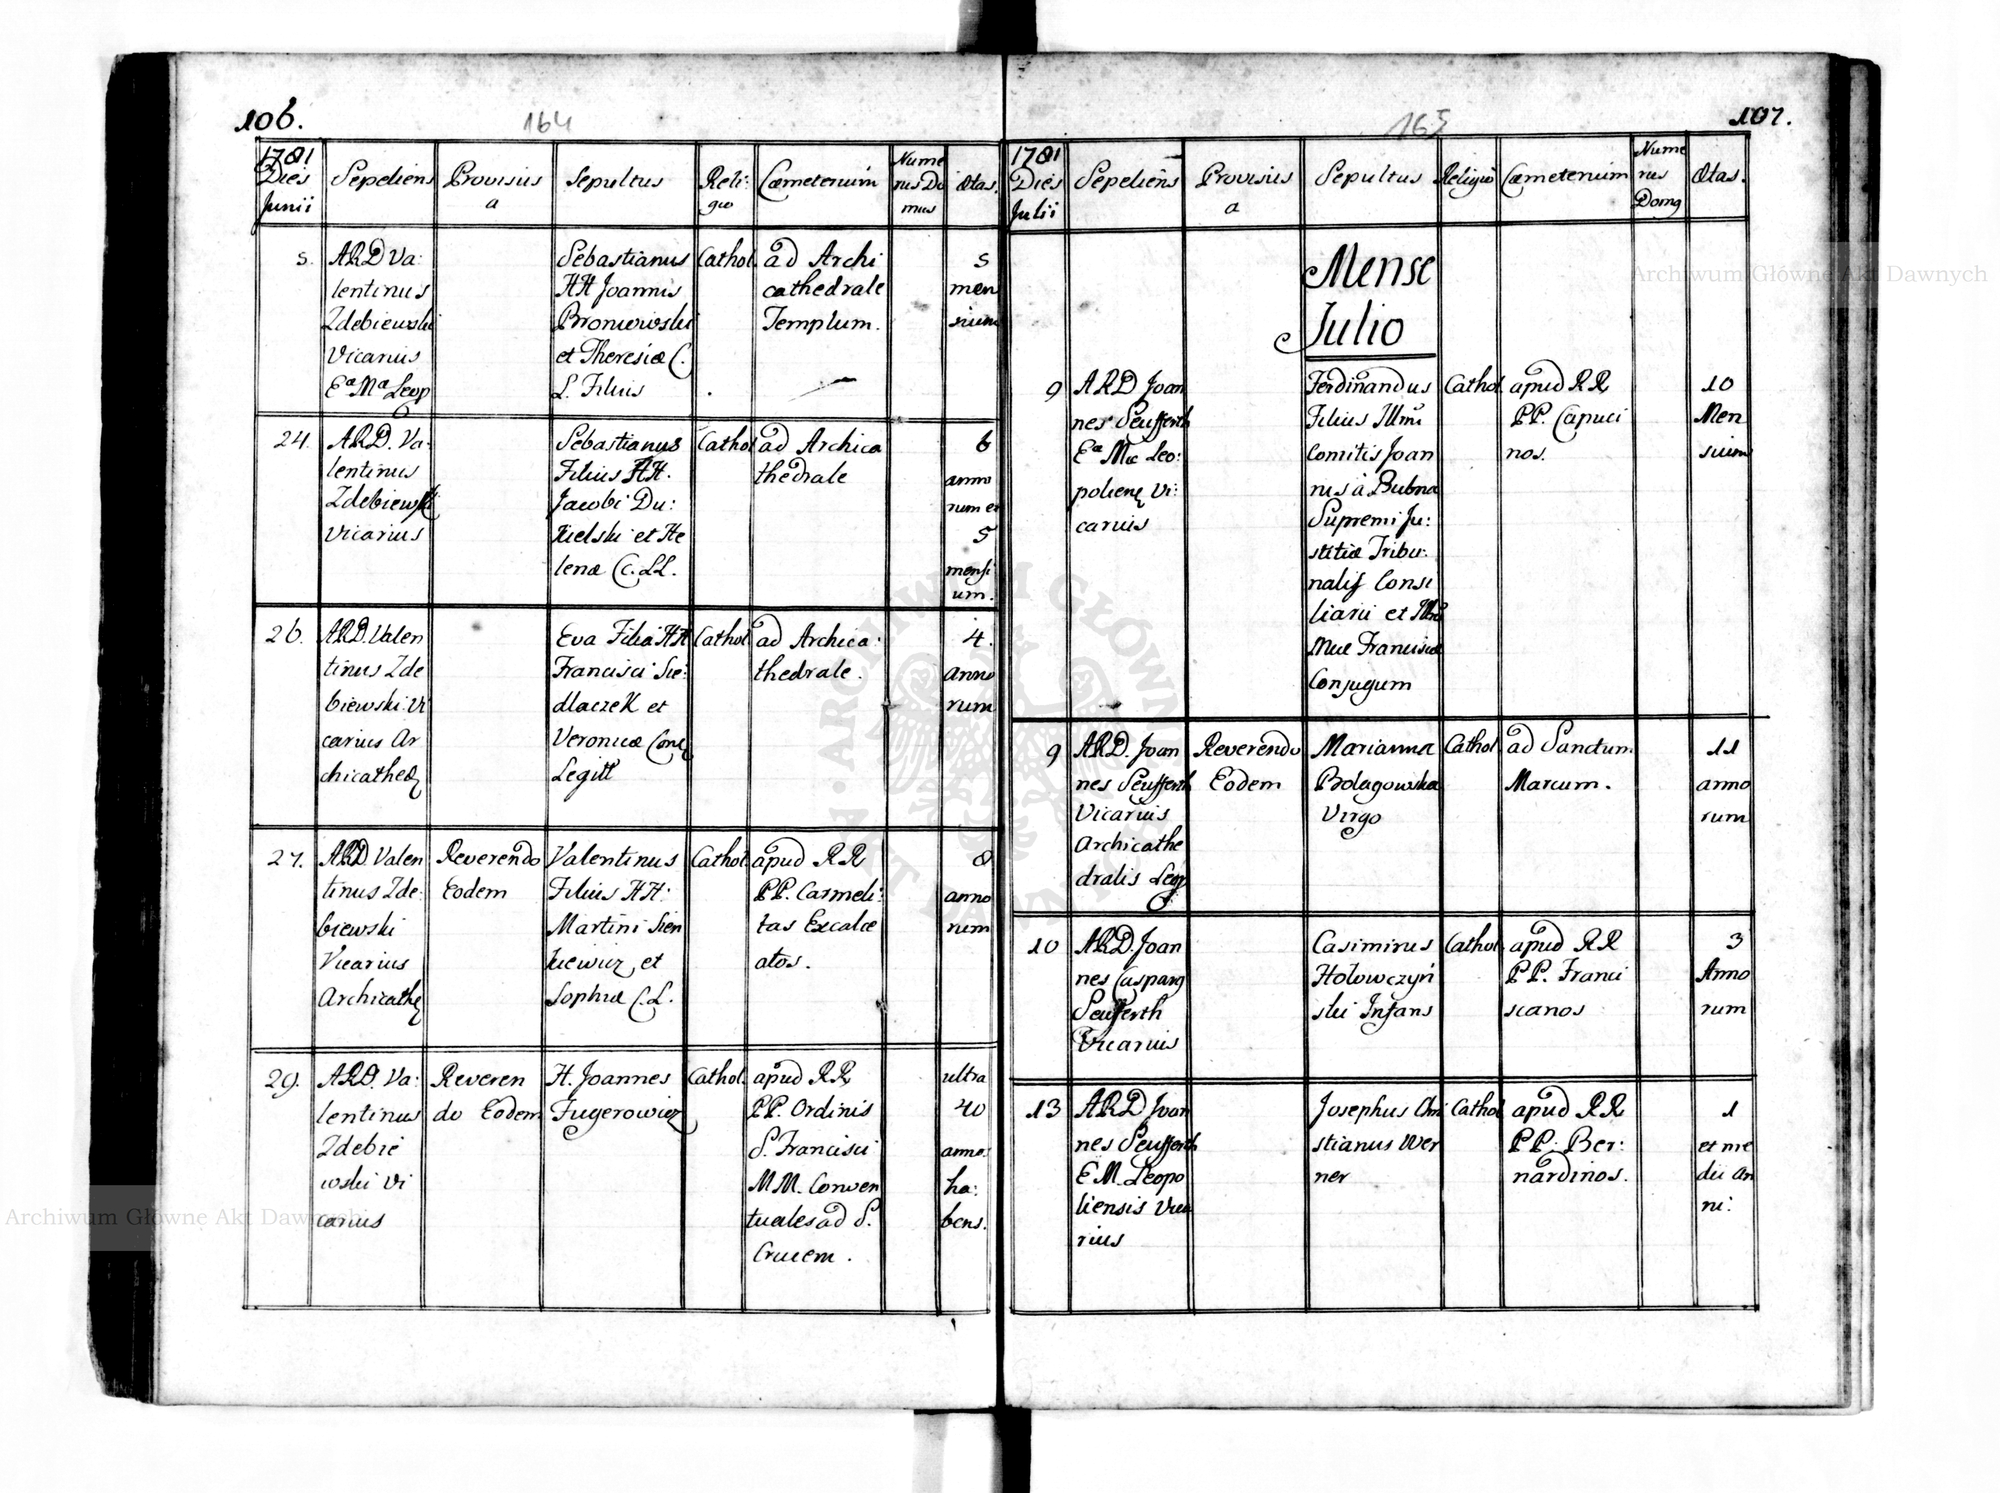 106.
164
1781
Dies
Junii
Sepeliens
Provisus
a
Sepultus
Reli:
gio
Cœmeterium
Nume
rus Do
mus
Ætas.
5.
ARD Va:
lentinus
Zdebiewski
Vicarius
Eæ Mæ Leop
Sebastianus
HH Joannis
Bromirski
et Theresiæ C.
L. Filius
Cathol.
ad Archi
cathedrale
Templum.
5
men
sium
24.
ARD. Va:
lentinus
Zdebiewski
Vicarius
Sebastianus
Filius HH.
Jacobi Du:
kielski et He
lenæ C. LL.
Cathol
ad Archica
thedrale
6
anno
rum et
5
mensi
um.
26.
ARD. Valen
tinus Zde
biewski Vi
carius Ar
chicathed
Eva Filia HH
Francisci Sie:
dlaczek et
Veronicæ Conj
Legitt
Cathol
ad Archica:
thedrale.
4.
anno
rum
27.
ARD Valen
tinus Zde:
biewski
Vicarius
Archicathe
Reverendo
Eodem
Valentinus
Filius HH:
Martini Sien
kiewicz et
Sophiæ C.L.
Cathol.
apud RR
PP. Carmeli:
tas Excalce
atos.
8
anno
rum
29.
ARD. Va:
lentinus
Zdebie
wski Vi
carius
Reveren
do Eodem
H. Joannes
Fugerowicz
Cathol.
apud RR
PP. Ordinis
S. Francisci
MM. Conven
tuales ad S.
Crucem.
ultra
40
anno:
ha:
bens.
107.
165
1781
Dies
Julii
Sepeliens
Provisus
a
Sepultus
Religio
Cœmeterium
Nume
rus
Domq
Ætas.
Mense
Julio
9
ARD Joan
nes Seufferth
Eæ Mæ Leo:
poliens Vi:
carius
Ferdinandus
Filius Illmi
Comitis Joan
nis à Bubna
Supremi Ju:
stitiæ Tribu:
nalis Consi
liarii et Illris
Mæ Franciscæ
Conjugum
Cathol.
apud RR
PP. Capuci
nos.
10
Men
sium
9
ARD. Joan
nes Seufferth
Vicarius
Archicathe
dralis Leop
Reverendo
Eodem
Marianna
Bolagowska
Virgo
Cathol
ad Sanctum
Marcum.
11
anno
rum
10
ARD. Joan
nes Caspary
Seufferth
Vicarius
Casimirus
Holowczyń
ski Infans
Cathol
apud RR
PP. Franci
scanos
3
Anno
rum
13
ARD Joan
nes Seufferth
E M. Leopo
liensis Vica
rius
Josephus Chri
stianus Wer
ner
Cathol
apud RR
PP. Ber:
nardinos.
1
et me
dii an
ni.
Archiwum Główne Akt Dawnych
Archiwum Główne Akt Dawnych
ARCHIWUM GŁÓWNE AKT DAWNYCH